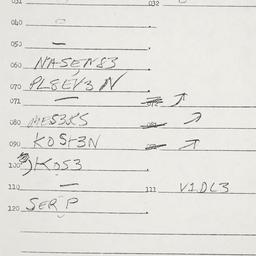 031 032
040
050 —
060 NASENS3
070 PLSEV3N
071 —
080 MES3KS
090 KOSI3N
100 KOS3
110 — 111 VIDL3
120 SERP